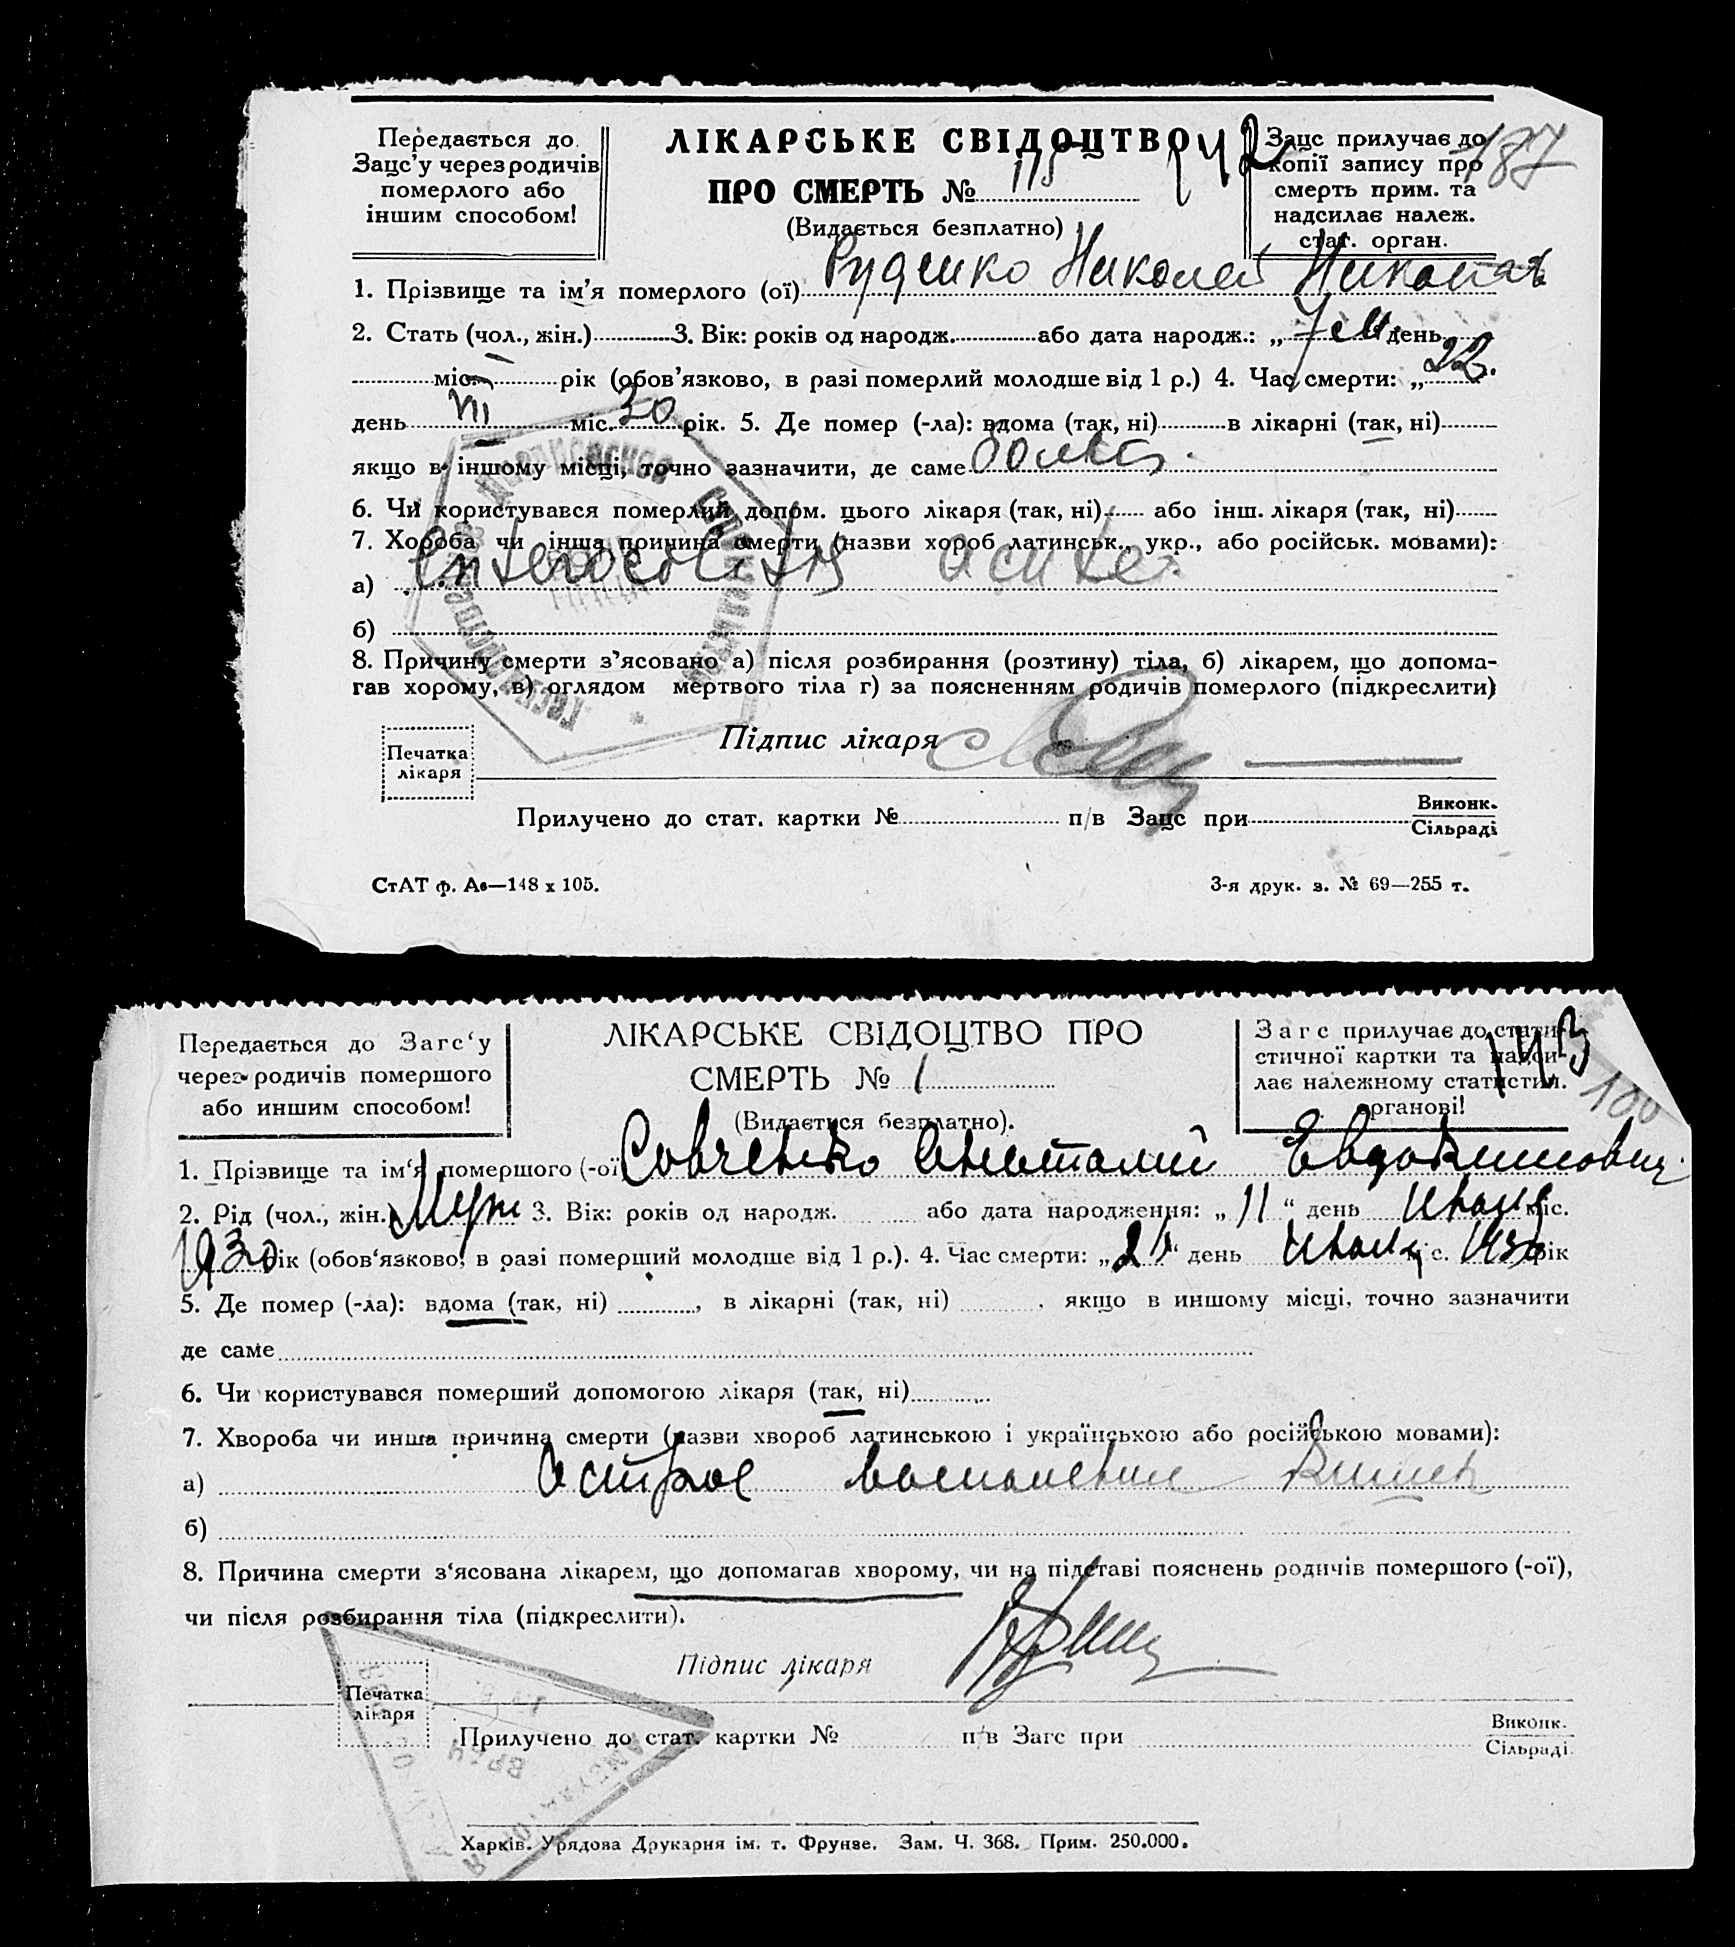 Передається до
Зацс'у через родичів
померлого або
іншим способом!
ЛІКАРСЬКЕ СВІДОЦТВО 142
ПРО СМЕРТЬ № 115
(Видається безплатно)
Зацс прилучає до
копії запису про
смерть прим. та
надсилає належ.
стат. орган.
187
1. Прізвище та ім'я померлого (ої) Руденко Николай
2. Стать (чол., жін.) 3. Вік: років од народж. або дата народж.: „ 7 м день
міс. рік (обов'язково, в разі померлий молодше від 1 р.) 4. Час смерти: „ 22.
день VII міс. 30 рік. 5. Де помер (-ла): вдома (так, ні) в лікарні (так, ні)
якщо в іншому місці, точно зазначити, де саме
6. Чи користувався померлий допом. цього лікаря (так, ні) або інш. лікаря (так, ні)
7. Хороба чи інша причина смерти (назви хороб латинськ., укр., або російськ. мовами):
а) Enterocolitis acuta
б)
8. Причину смерти з'ясовано а) після розбирання (розтину) тіла, б) лікарем, що допома-
гав хорому, в) оглядом мертвого тіла г) за поясненням родичів померлого (підкреслити)
Підпис лікаря
Печатка
лікаря
Прилучено до стат. картки № п/в Зацс при Виконк.
Сільраді
СтАТ ф. А6—148 х 105.
3-я друк. з. № 69—255 т.
Передається до Загс'у
через родичів помершого
або иншим способом!
ЛІКАРСЬКЕ СВІДОЦТВО ПРО
СМЕРТЬ № 1
(Видається безплатно).
Загс прилучає до стати-
стичної картки та надси-
лає належному статистич.
органові!
143
100
1. Прізвище та ім'я помершого (-ої) Савченко Анатолий Евдокимович
2. Рід (чол., жін.) Муж 3. Вік: років од народж. або дата народження: „ 11 “ день июля міс.
1930 рік (обов'язково, в разі померший молодше від 1 р.). 4. Час смерти: „ 21 “ день июля міс. 1930 рік
5. Де помер (-ла): вдома (так, ні) , в лікарні (так, ні) , якщо в иншому місці, точно зазначити
де саме
6. Чи користувався померший допомогою лікаря (так, ні)
7. Хвороба чи инша причина смерти (назви хвороб латинською і українською або російською мовами):
а) Острое воспаление кишек
б)
8. Причина смерти з'ясована лікарем, що допомагав хворому, чи на підставі пояснень родичів помершого (-ої),
чи після розбирання тіла (підкреслити).
Підпис лікаря
Печатка
лікаря
Прилучено до стат. картки № п/в Загс при Виконк.
Сільраді
Харків. Урядова Друкарня ім. т. Фрунзе. Зам. Ч. 368. Прим. 250.000.